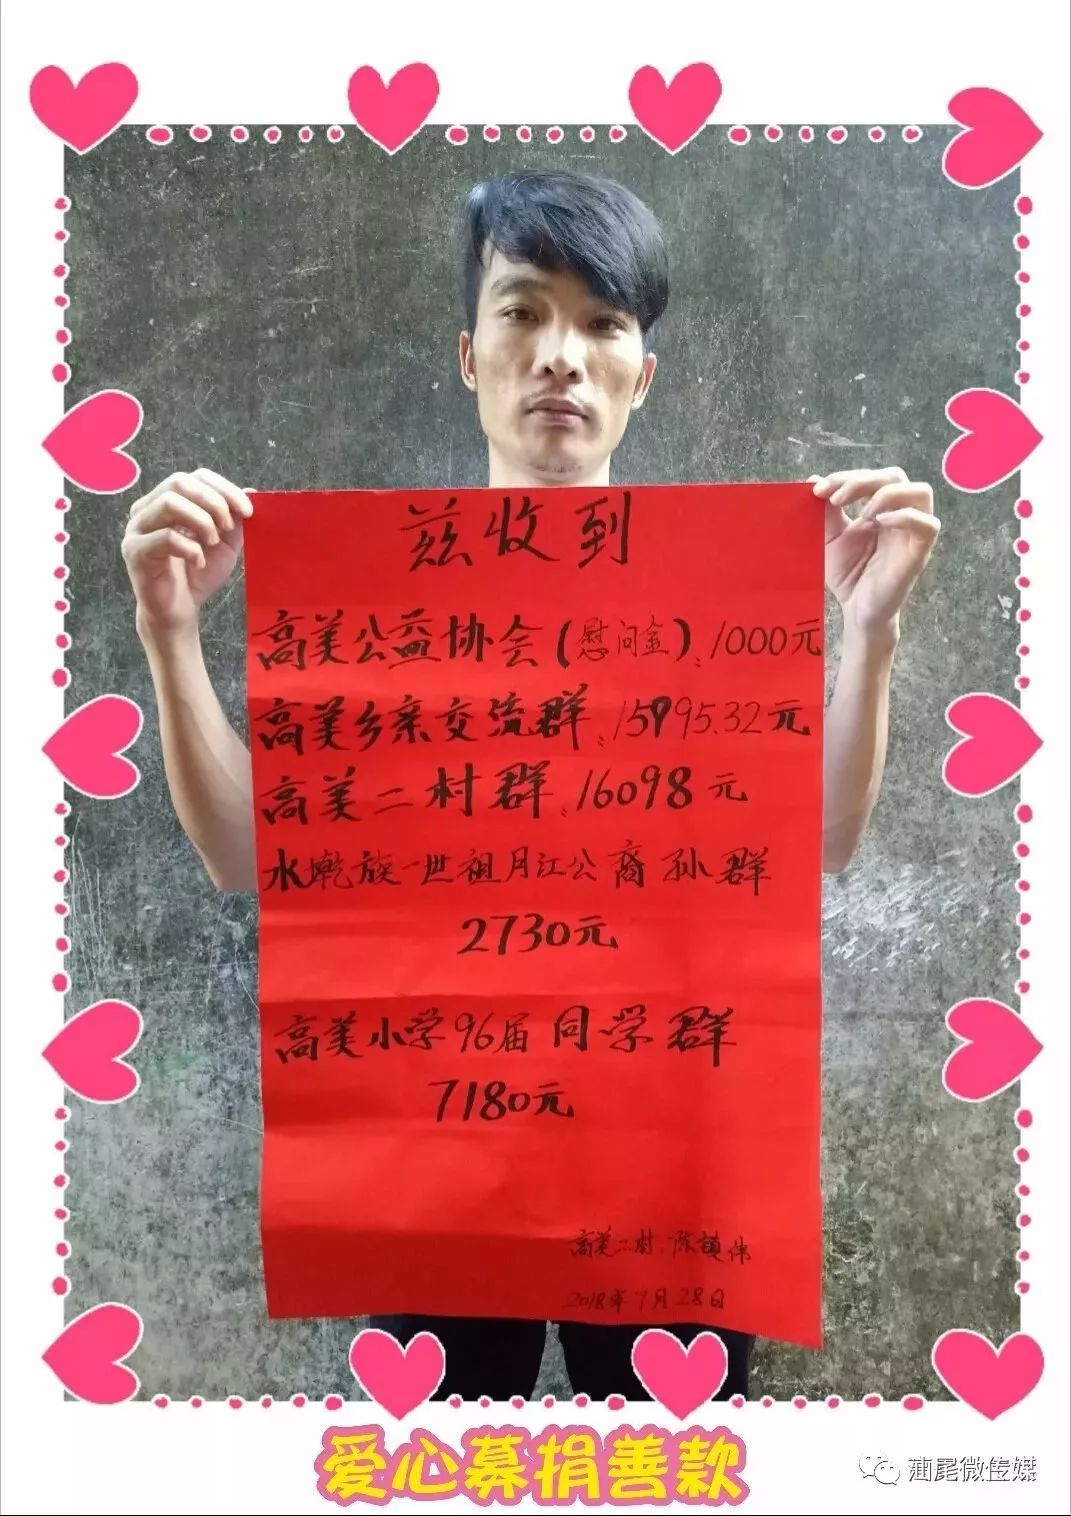 兹收到
高美公益协会(慰问金):1000元
高美乡亲交流群:15995.32元
高美二村群:16098元
水乾族一世祖月江公裔孙群
2730元
高美小学96届同学群
7180元
高美二村:陈镇伟
2018年7月28日
爱心募捐善款
汕尾微传媒